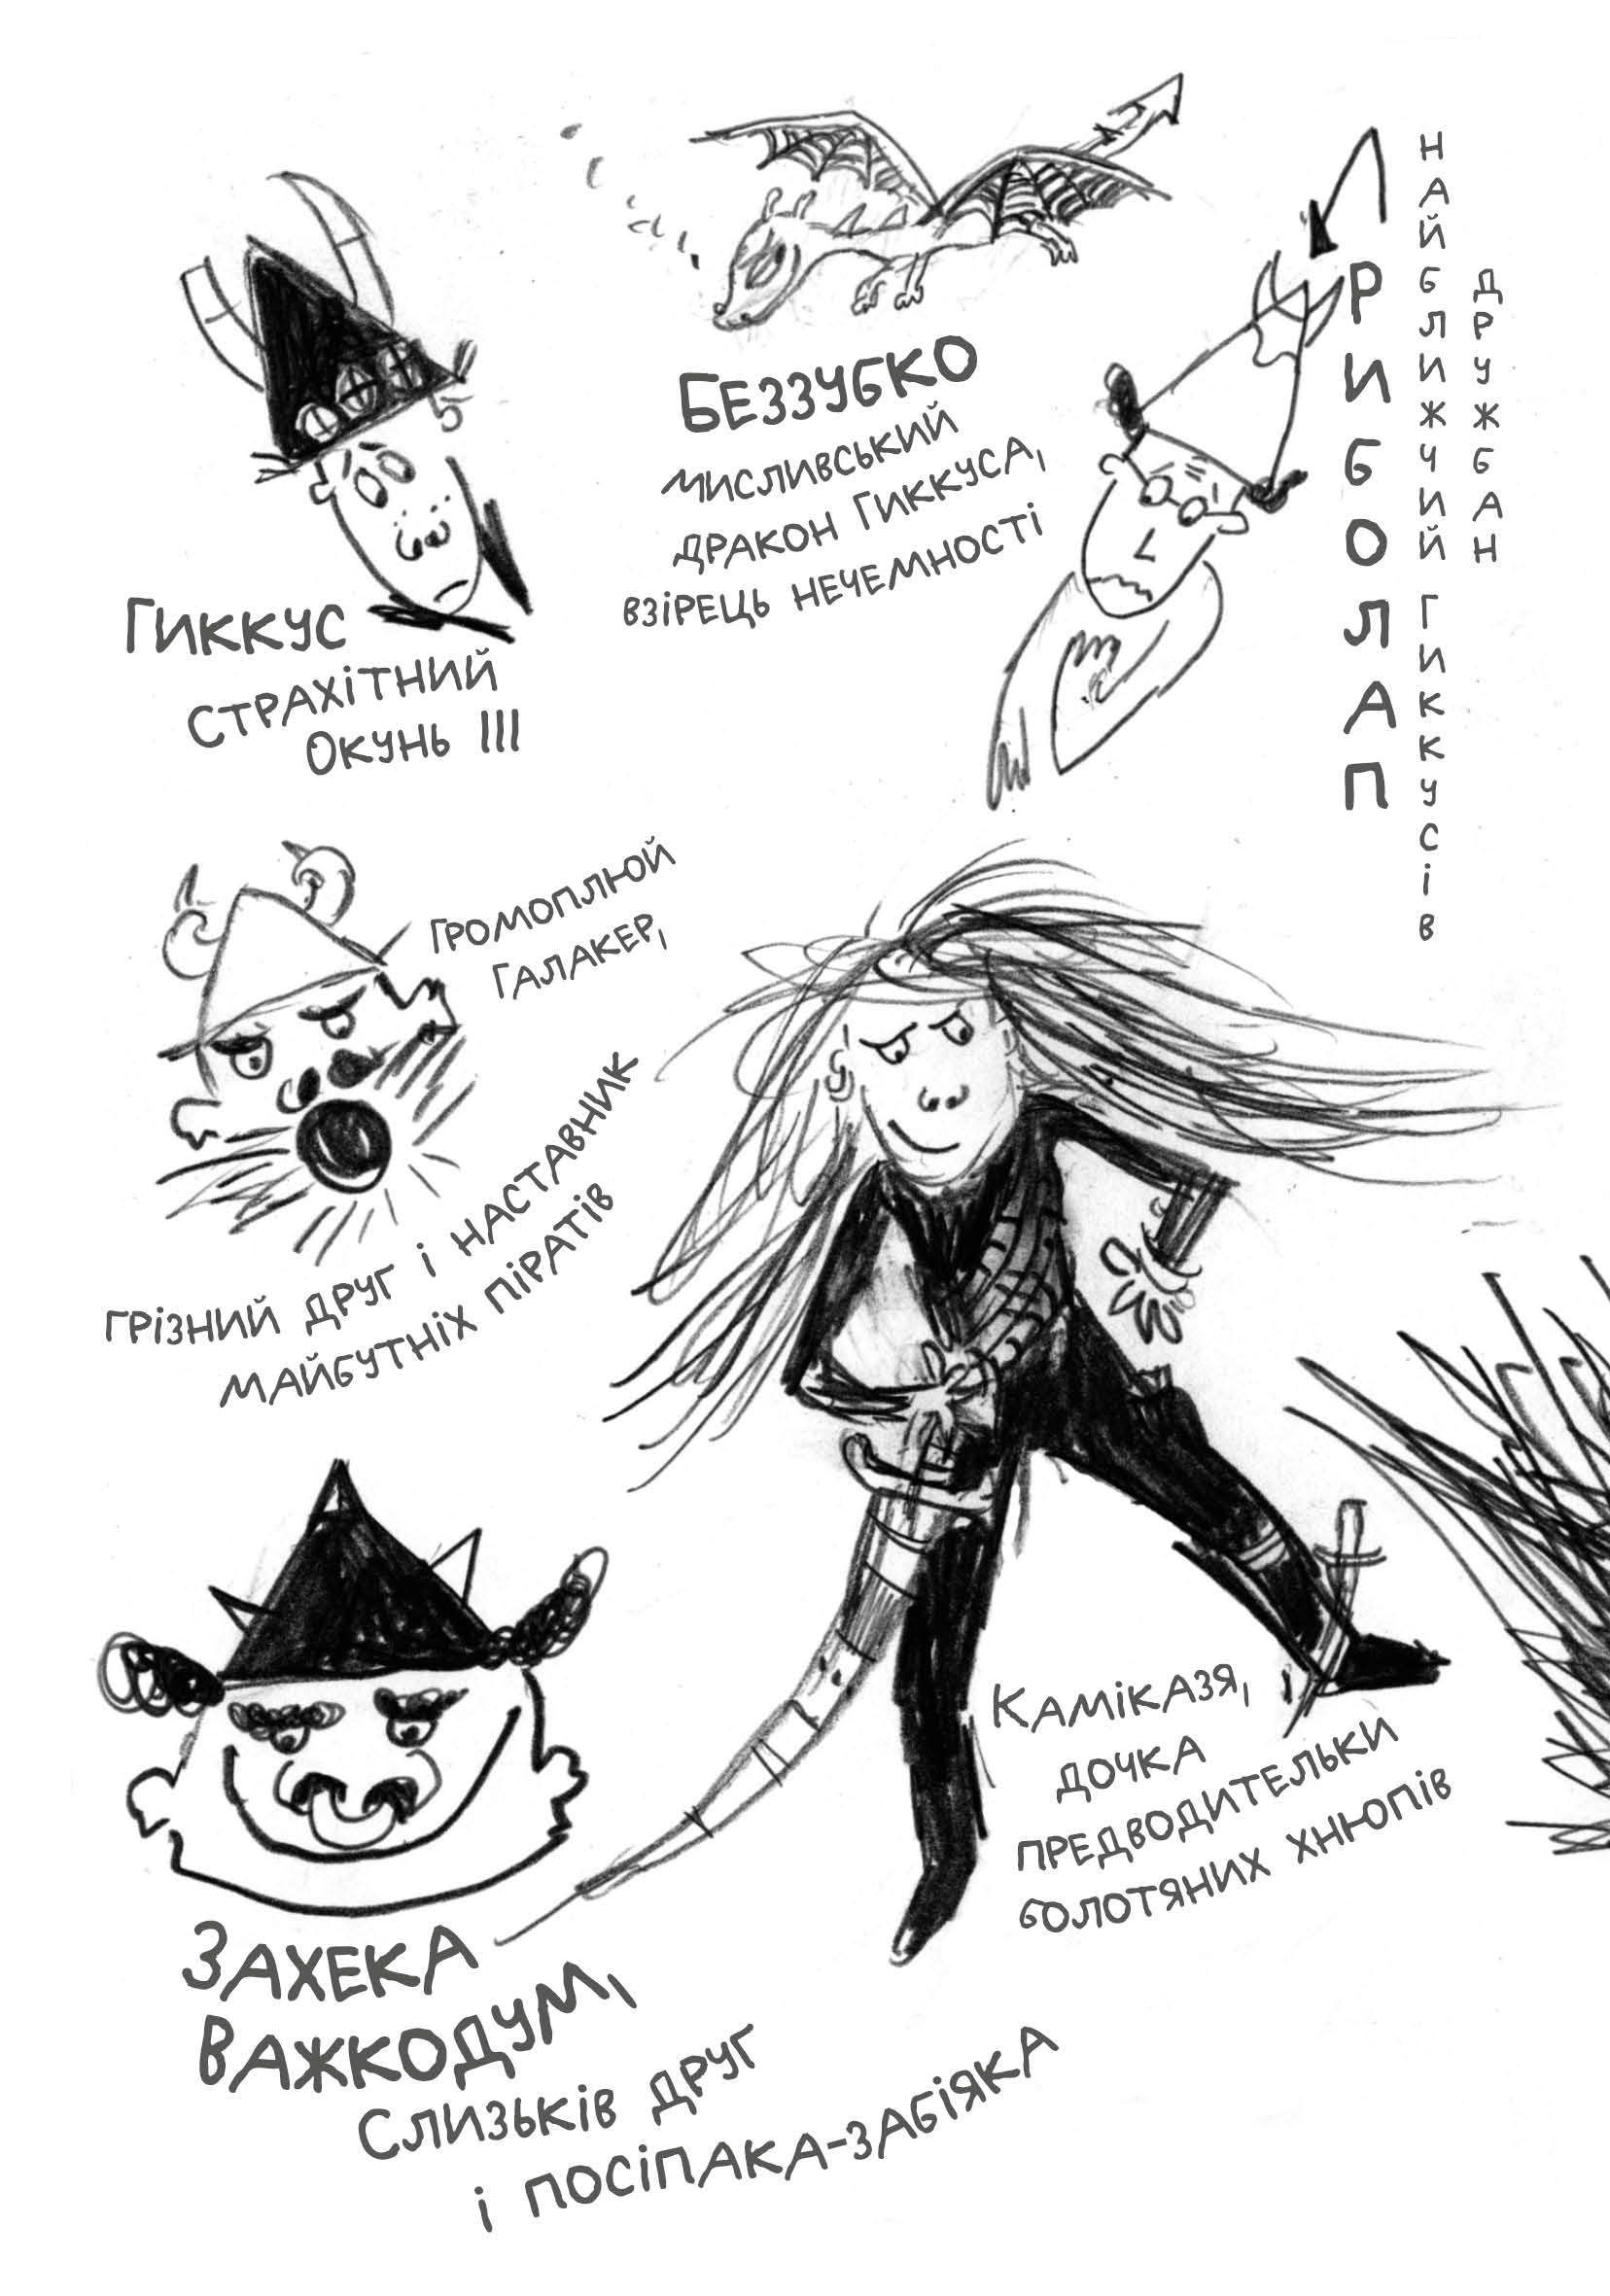 БЕЗЗУБКО
МИСЛИВСЬКИЙ
ДРАКОН ГИККУСА,
ВЗІРЕЦЬ НЕЧЕМНОСТІ
ГИККУС
СТРАХІТНИЙ
ОКУНЬ III
РИБОЛАП
НАЙБЛИЖЧИЙ ГИККУСІВ
ДРУЖБАН
ГРОМОПЛЮЙ
ГАЛАКЕР,
ГРІЗНИЙ ДРУГ І НАСТАВНИК
МАЙБУТНІХ ПІРАТІВ
КАМІКАЗЯ,
ДОЧКА
ПРЕДВОДИТЕЛЬКИ
БОЛОТЯНИХ ХНЮПІВ
ЗАХЕКА
ВАЖКОДУМ,
СЛИЗЬКІВ ДРУГ
І ПОСІПАКА-ЗАБІЯКА